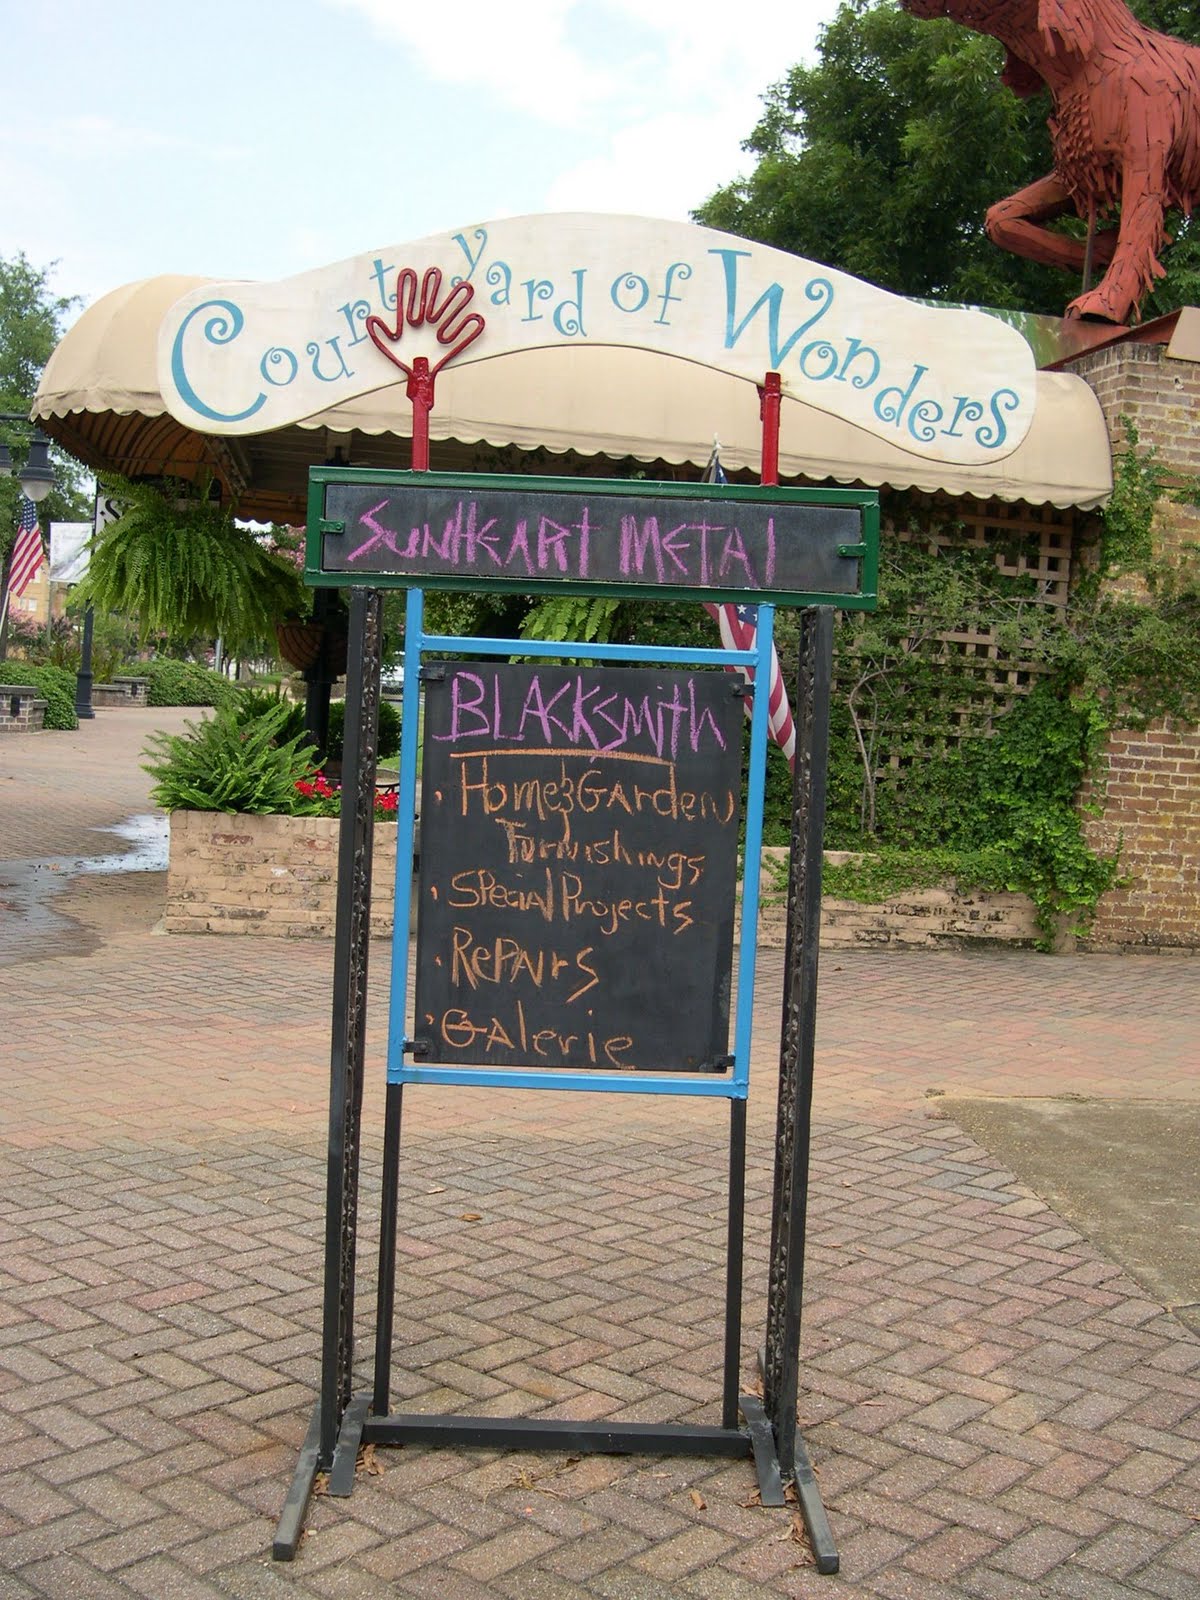 Courtyard of Wonders
SunHeart Metal
Blacksmith
· Home & Garden
Furnishings
· Special Projects
· Repairs
· Galerie